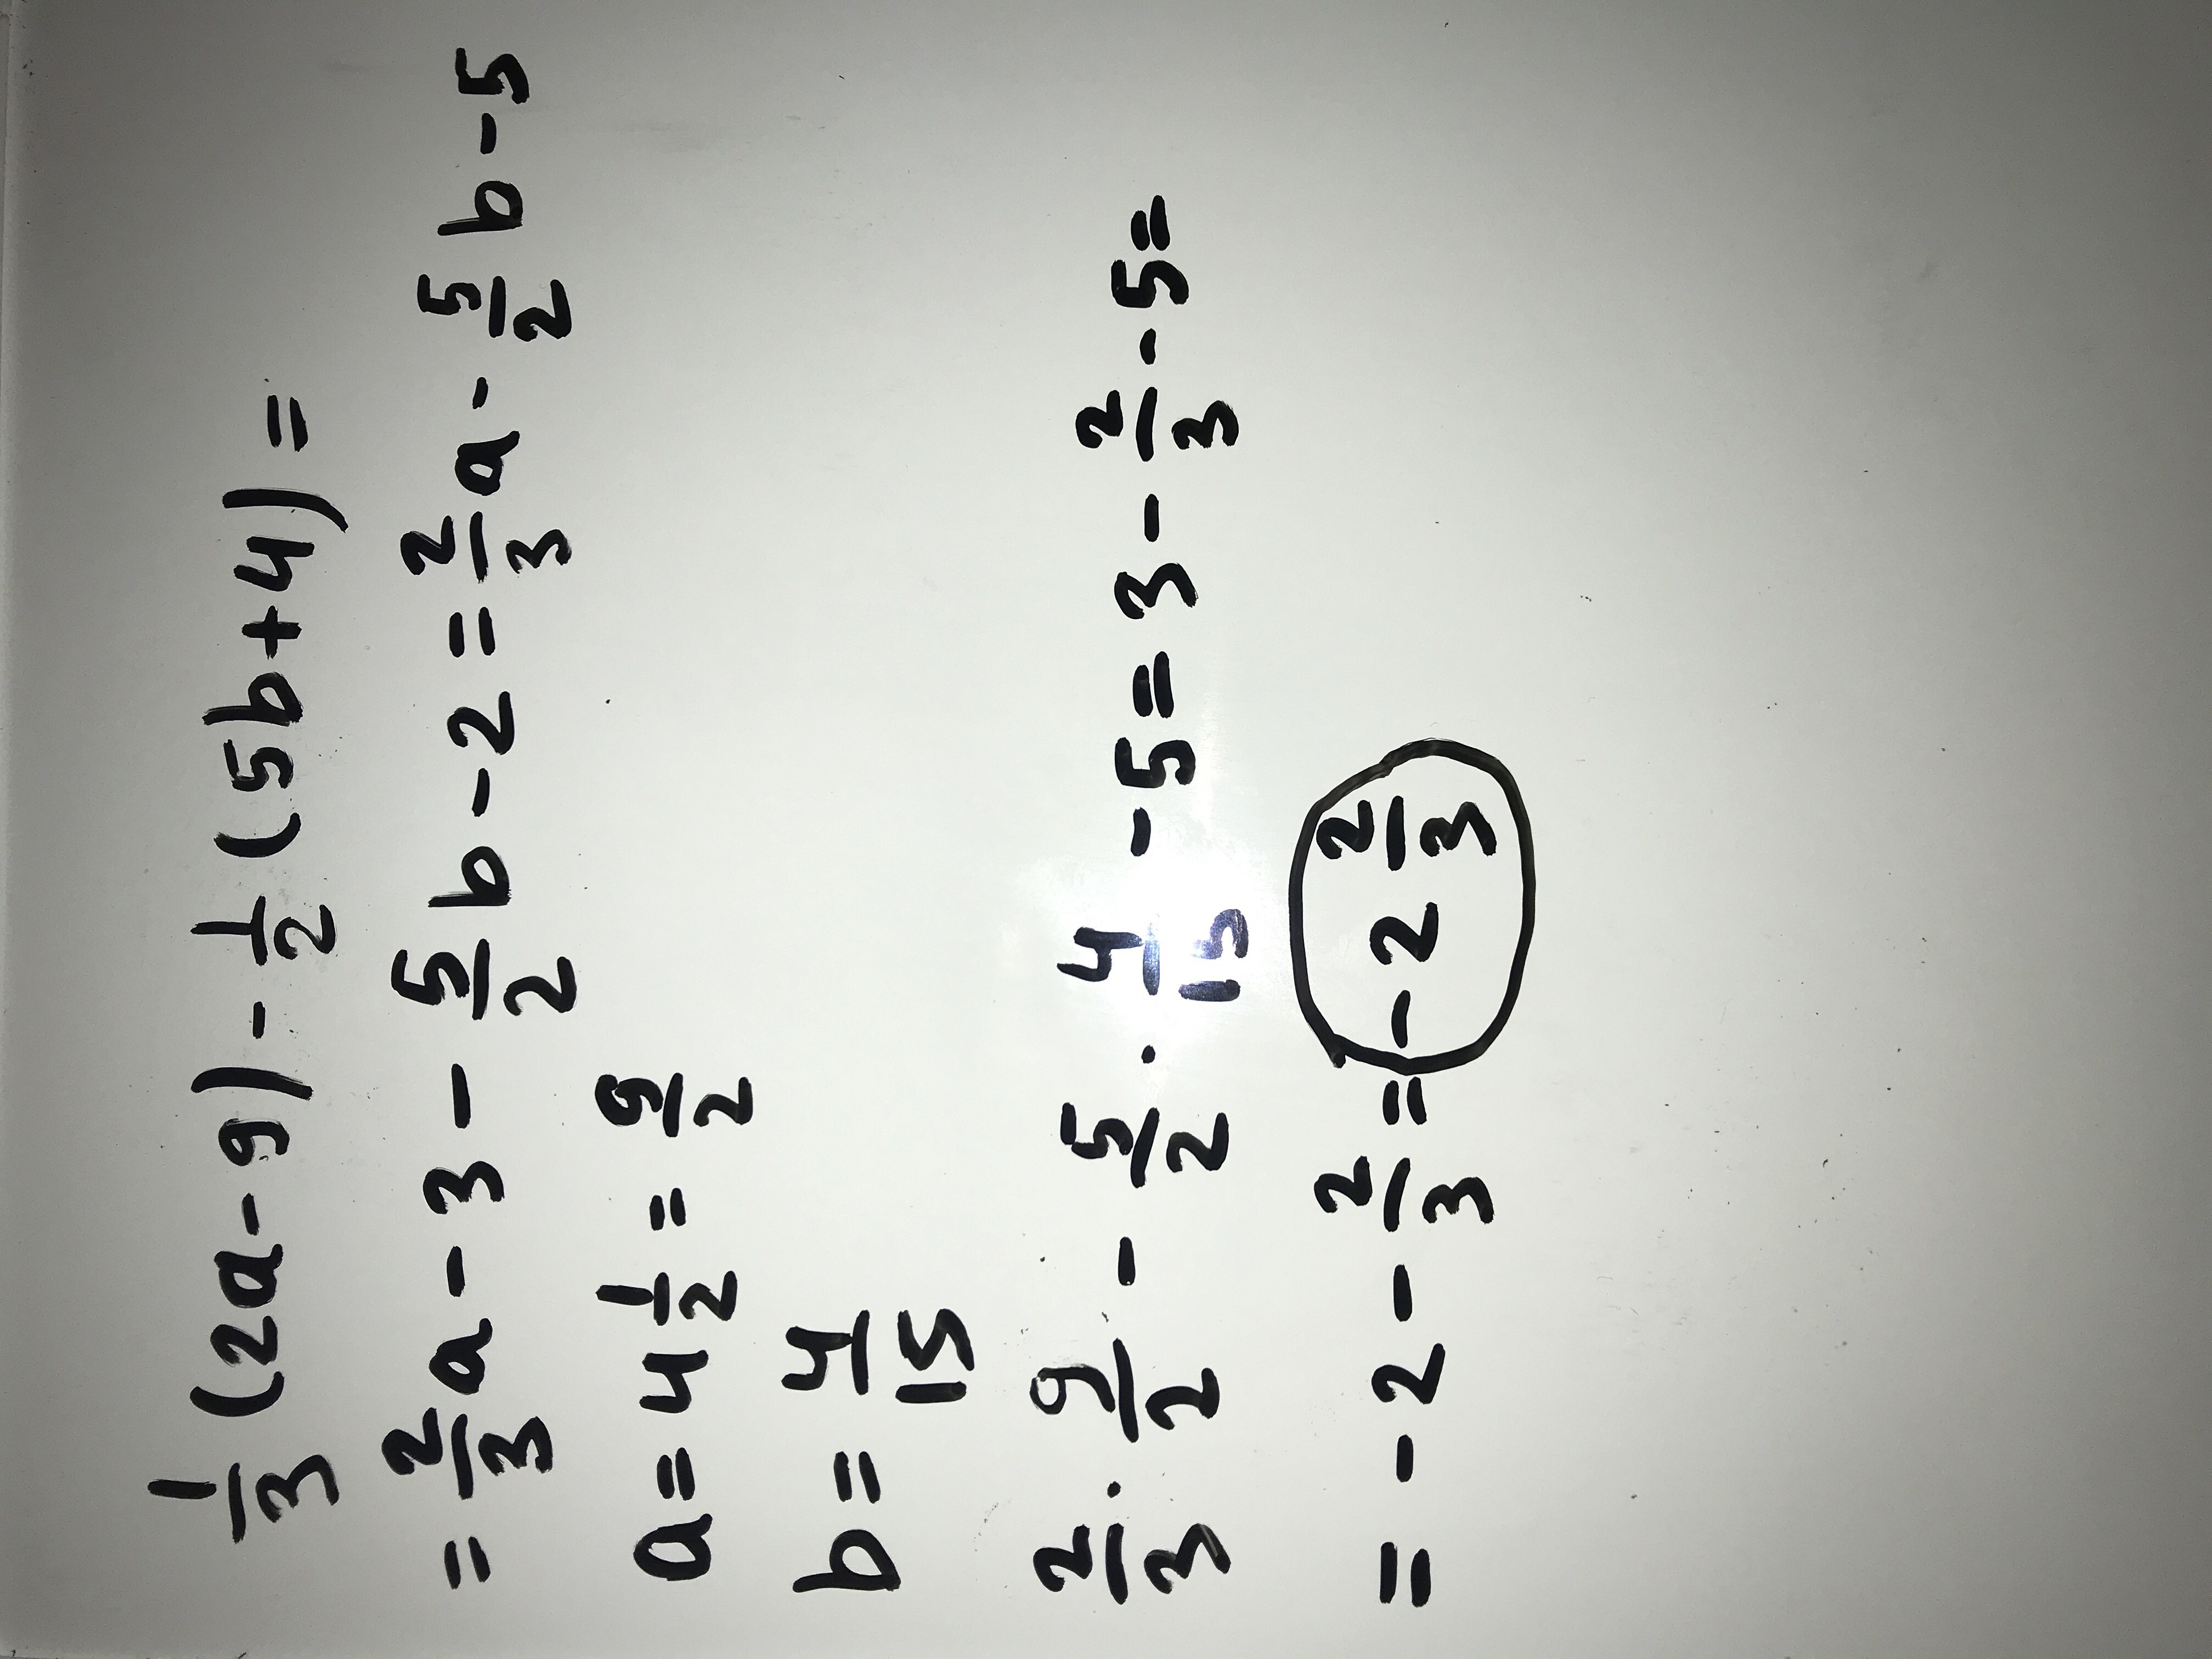 1/3 (2a-9) - 1/2 (5b+4) =
= 2/3 a - 3 - 5/2 b - 2 = 2/3 a - 5/2 b - 5
a = 4 1/2 = 9/2
b = 4/15
2/3 · 9/2 - 5/2 · 4/15 - 5 = 3 - 2/3 - 5 =
= -2 - 2/3 = -2 2/3